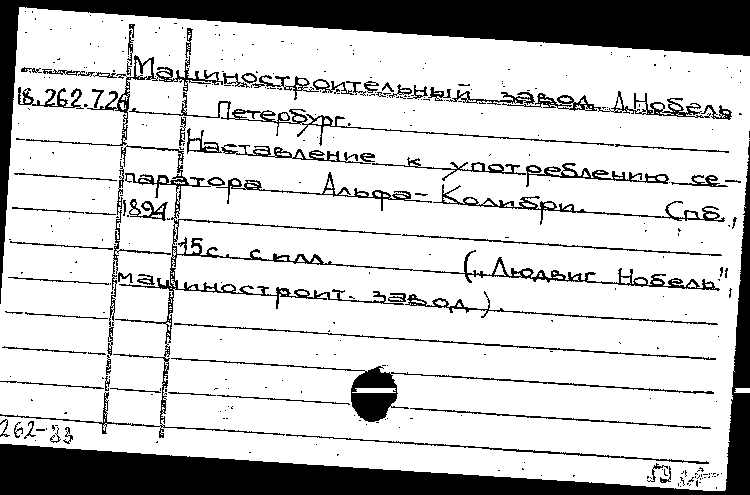 Машиностроительный завод Л.Нобель.
18.262.7.26.
Петербург.
Наставление к употреблению се-
паратора Альфа-Колибри. Спб.,
1894.
15с. с илл. („Людвиг Нобель",
машиностроит. завод).
262-83